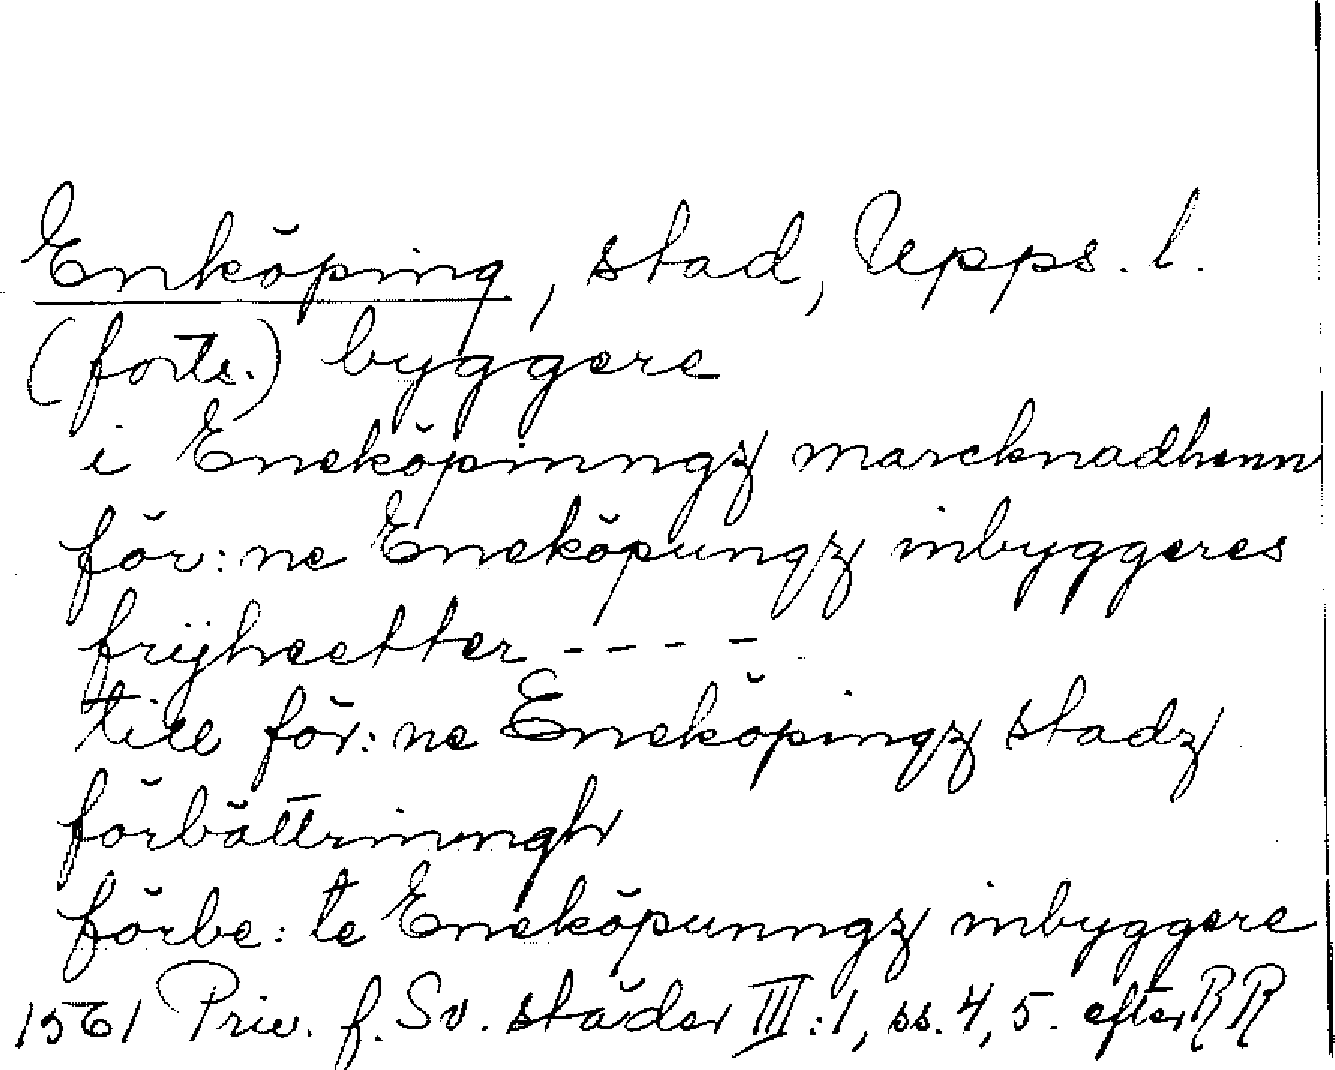 Enköping, stad, Upps. l.
(forts.) byggere
i Eneköpinngz marcknadhenn
för:ne Eneköpungz inbyggeres
frijheetter - - - -
till för:ne Eneköpingz stadz
förbättrinningh
förbe:te Eneköpunngz inbyggere
1561 Priv. f. Sv. städer III:1, ss. 4, 5. efter RR